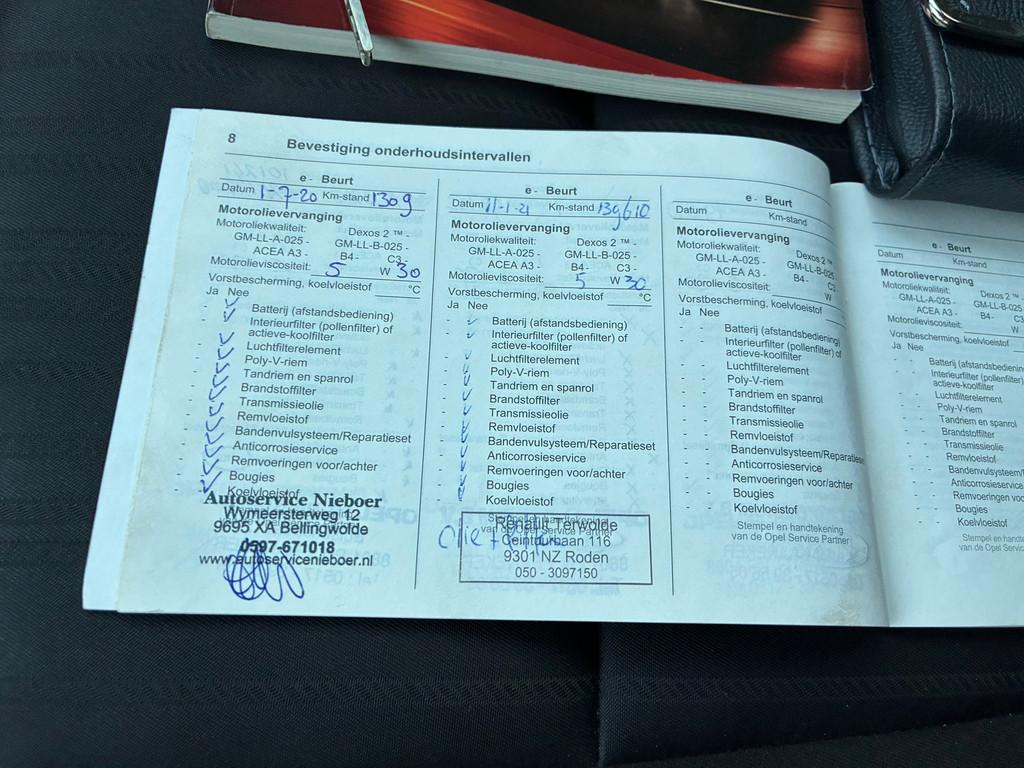 8 Bevestiging onderhoudsintervallen
e - Beurt
Datum 1-7-20 Km-stand 1309
Motorolievervanging
Motoroliekwaliteit: Dexos 2 ™ -
GM-LL-A-025 - GM-LL-B-025 -
ACEA A3 - B4- C3-
Motorolieviscositeit: 5 W 30
Vorstbescherming, koelvloeistof °C
Ja Nee
- Batterij (afstandsbediening)
- Interieurfilter (pollenfilter) of
actieve-koolfilter
- Luchtfilterelement
- Poly-V-riem
- Tandriem en spanrol
- Brandstoffilter
- Transmissieolie
- Remvloeistof
- Bandenvulsysteem/Reparatieset
- Anticorrosieservice
- Remvoeringen voor/achter
- Bougies
- Koelvloeistof
Autoservice Nieboer
Wymeersterweg 12
9695 XA Bellingwolde
0597-671018
www.autoservicenieboer.nl
e - Beurt
Datum 11-1-21 Km-stand 139610
Motorolievervanging
Motoroliekwaliteit: Dexos 2 ™ -
GM-LL-A-025 - GM-LL-B-025 -
ACEA A3 - B4- C3-
Motorolieviscositeit: 5 W 30
Vorstbescherming, koelvloeistof °C
Ja Nee
- Batterij (afstandsbediening)
- Interieurfilter (pollenfilter) of
actieve-koolfilter
- Luchtfilterelement
- Poly-V-riem
- Tandriem en spanrol
- Brandstoffilter
- Transmissieolie
- Remvloeistof
- Bandenvulsysteem/Reparatieset
- Anticorrosieservice
- Remvoeringen voor/achter
- Bougies
- Koelvloeistof
Stempel en handtekening
van de Opel Service Partner
Renault Terwolde
Ceintuurbaan 116
9301 NZ Roden
050 - 3097150
Olie +
e - Beurt
Datum Km-stand
Motorolievervanging
Motoroliekwaliteit: Dexos 2 ™ -
GM-LL-A-025 - GM-LL-B-025
ACEA A3 - B4- C3-
Motorolieviscositeit: W
Vorstbescherming, koelvloeistof °C
Ja Nee
- Batterij (afstandsbediening)
- Interieurfilter (pollenfilter) of
actieve-koolfilter
- Luchtfilterelement
- Poly-V-riem
- Tandriem en spanrol
- Brandstoffilter
- Transmissieolie
- Remvloeistof
- Bandenvulsysteem/Reparatieset
- Anticorrosieservice
- Remvoeringen voor/achter
- Bougies
- Koelvloeistof
Stempel en handtekening
van de Opel Service Partner
e - Beurt
Datum Km-stand
Motorolievervanging
Motoroliekwaliteit: Dexos 2 ™
GM-LL-A-025 - GM-LL-B-025
ACEA A3 - B4- C3
Motorolieviscositeit: W
Vorstbescherming, koelvloeistof
Ja Nee
- Batterij (afstandsbediening)
- Interieurfilter (pollenfilter)
actieve-koolfilter
- Luchtfilterelement
- Poly-V-riem
- Tandriem en spanrol
- Brandstoffilter
- Transmissieolie
- Remvloeistof
- Bandenvulsysteem/
- Anticorrosieservice
- Remvoeringen voo
- Bougies
- Koelvloeistof
Stempel en handtekening
van de Opel Service Partn